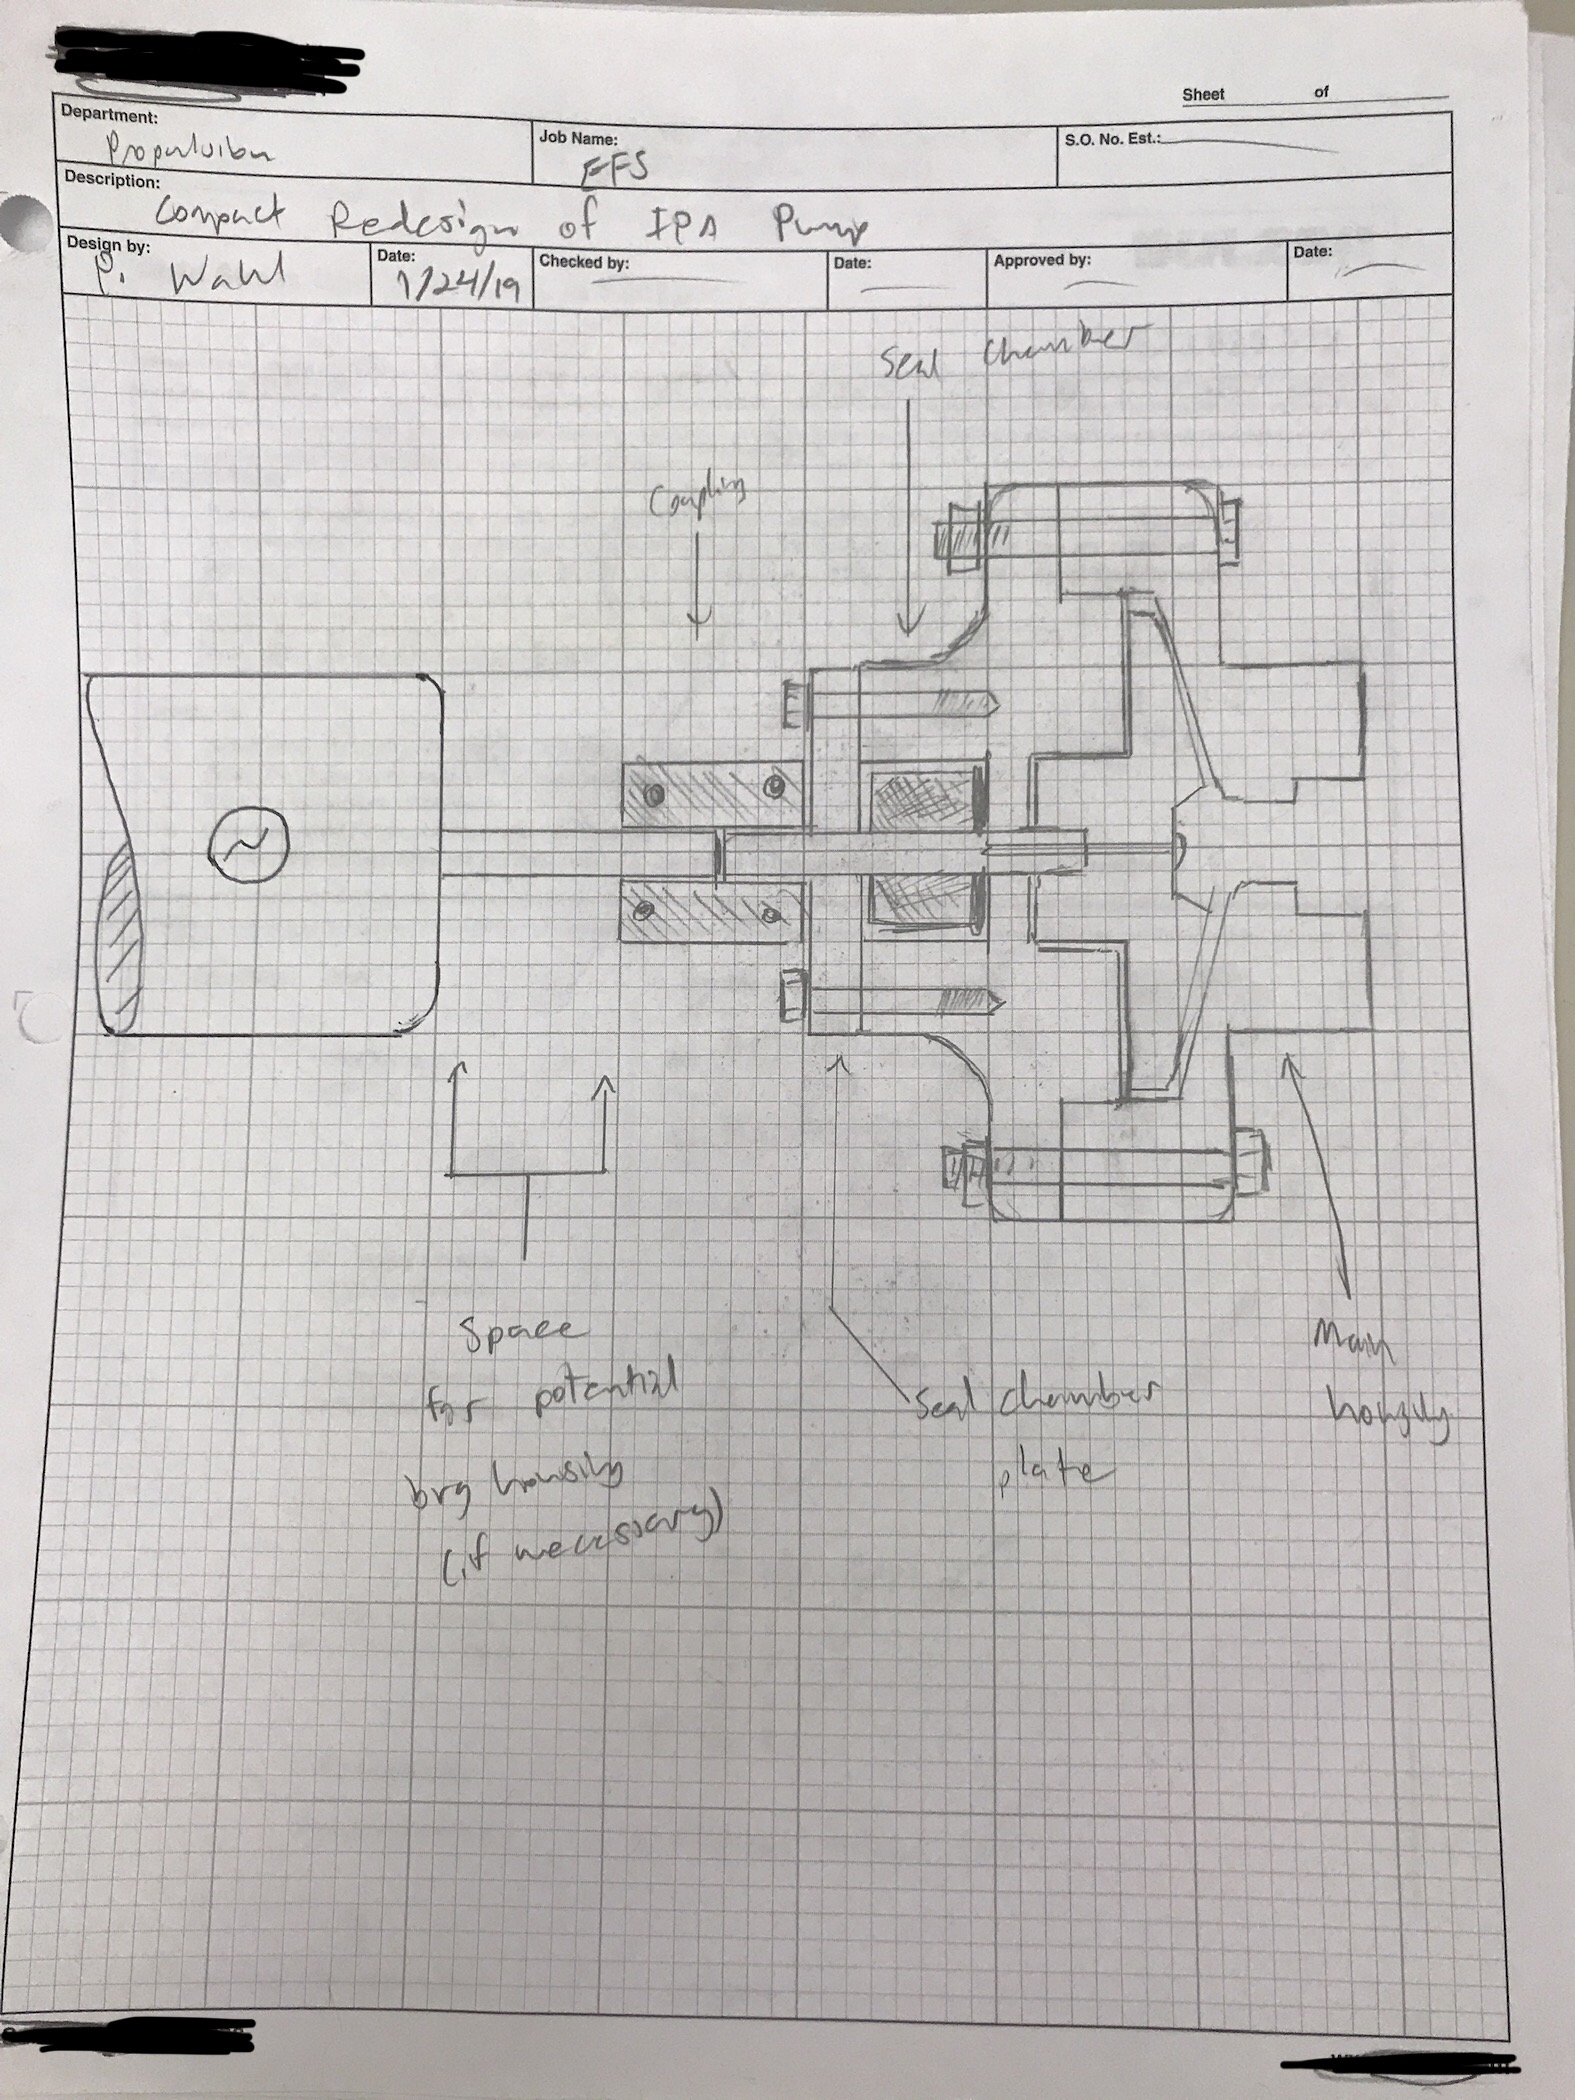 Sheet of
Department:
Propulsion
Job Name:
EFS
S.O. No. Est.:
Description:
Compact Redesign of IPA Pump
Design by:
P. Wahl
Date:
7/24/19
Checked by:
Date:
Approved by:
Date:
Seal Chamber
Coupling
Space
for potential
brg housing
(if necessary)
Seal chamber
plate
Main
housing